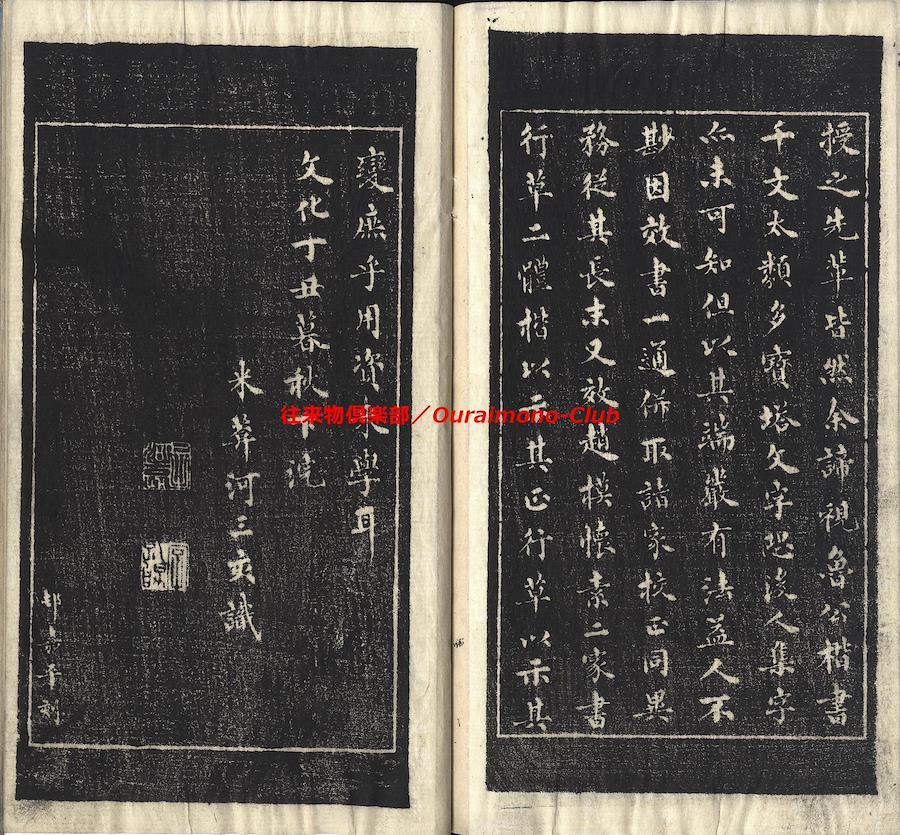 授之先輩皆然余諦視魯公楷書
千文太類多寶塔文字恐後人集字
亦未可知但以其端嚴有法益人不
尠因效書一通併取諸家校正同異
務從其長末又效趙模懷素二家書
行草二體楷以示其正行草以示其
變庶乎用資來學耳
文化丁丑暮秋中浣
米葊河三亥識
刻
往来物倶楽部／Ouraimono-Club